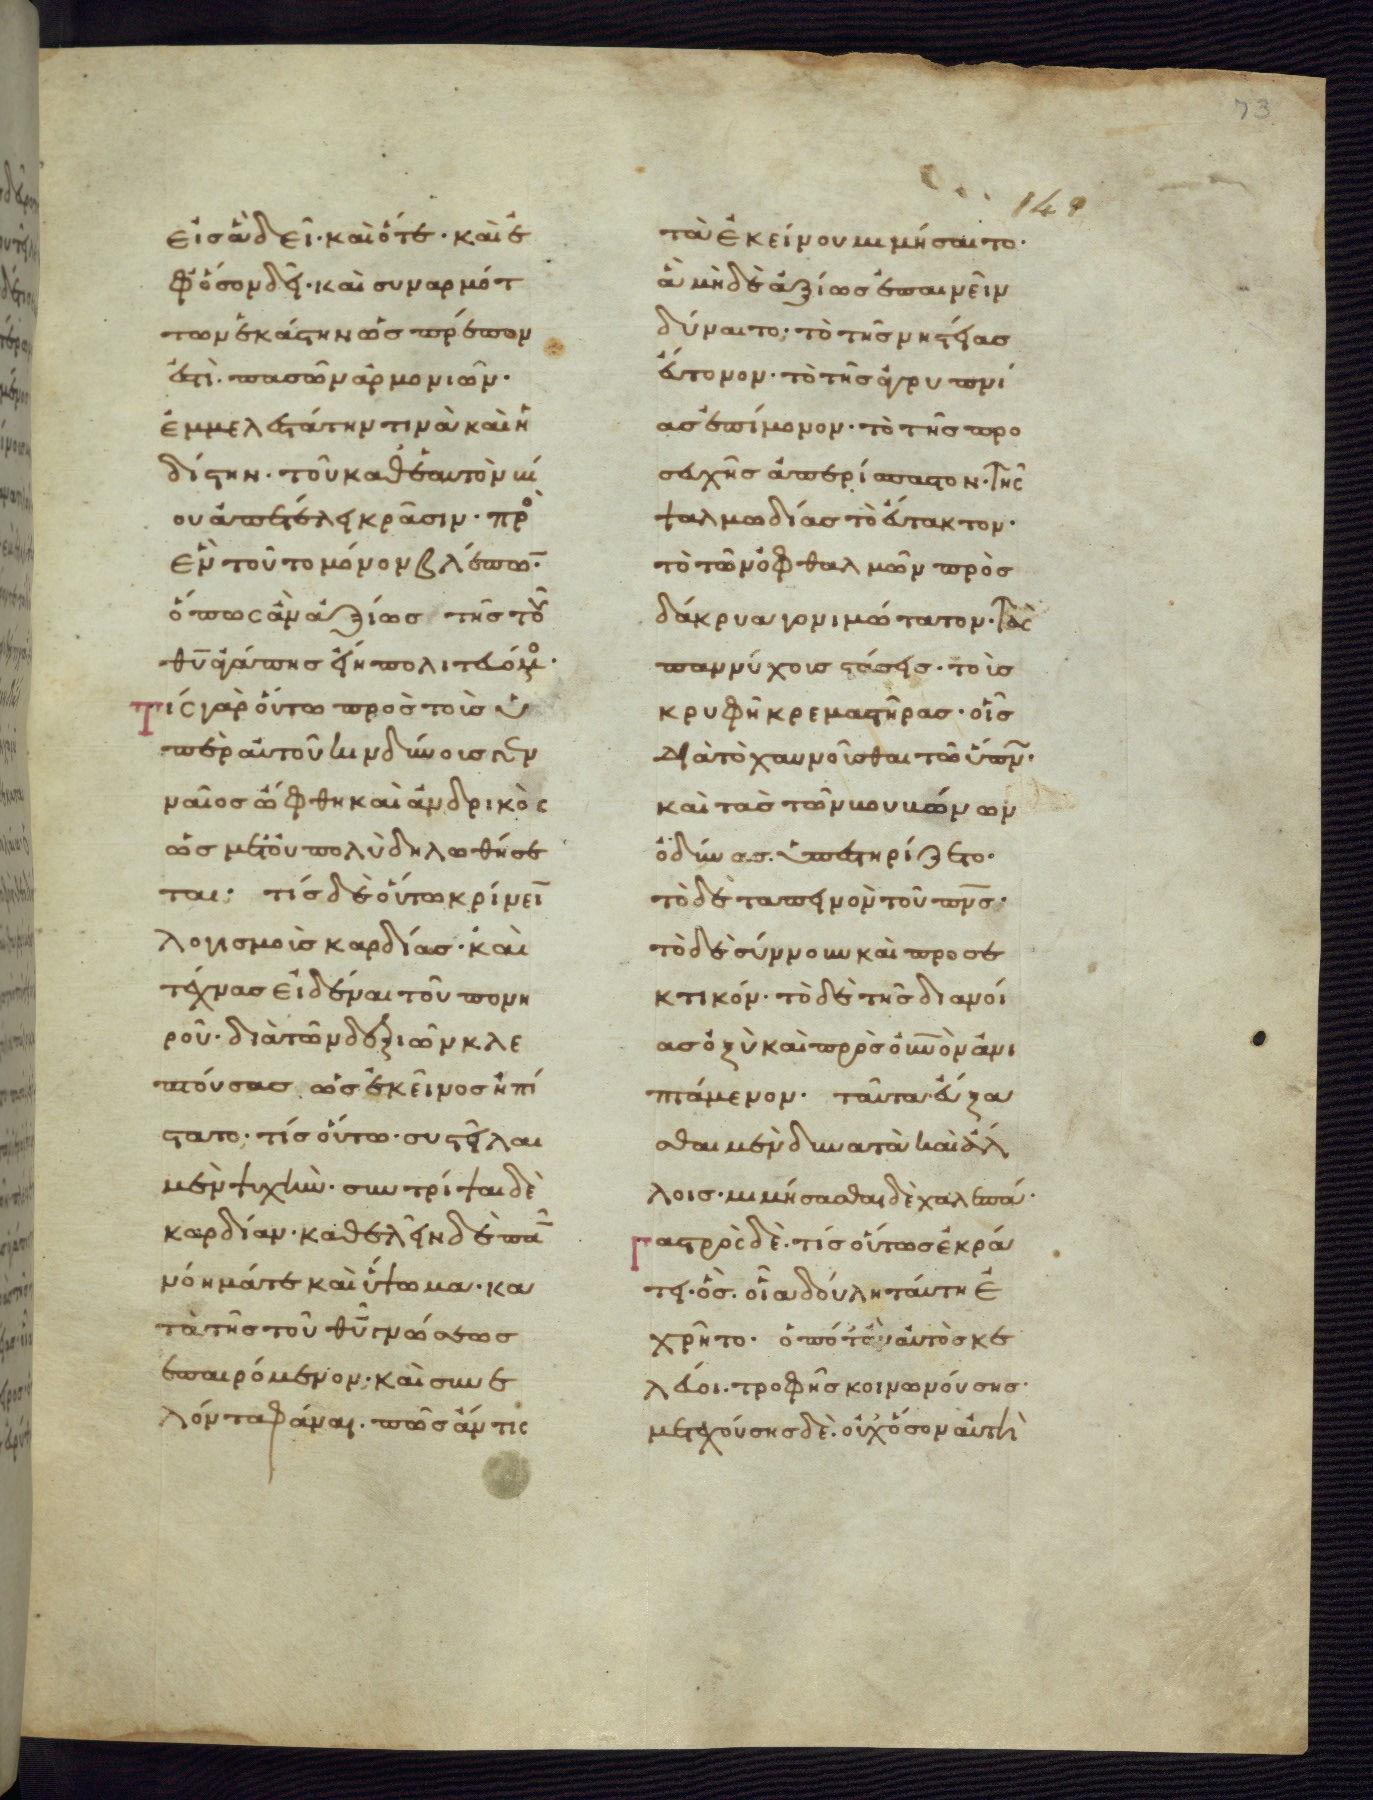 73
149
εἰσ ἃ δεῖ· καὶ ὅτε· καὶ ἐ
φ' ὅσον δεῖ· καὶ συναρμότ
των ἑκάστην ὡς πρέπον
ἐστὶ. πασῶν ἁρμονιῶν·
ἐμμελεστάτην τινὰ καὶ ἡ
δίστην· τοῦ καθ' ἑαυτὸν βί
ου ἀπετέλει κρᾶσιν· πρὸ
εν τοῦτο μόνον βλέπων·
ὅπως ἂν ἀξίως τῆς τοῦ
θυ ἀγάπης εἴη πολιτευόμενος·
Τίς γὰρ οὕτω πρὸς τοῖς ὑ
πὲρ αὐτοῦ κινδύνοις γεν
ναῖος ὤφθη καὶ ἀνδρικὸς
ὡς μετ' οὐ πολὺ δηλωθήσε
ται· τίς δὲ οὕτω κρίνειν
λογισμοὺς καρδίας· καὶ
τέχνας εἰδέναι τοῦ πονη
ροῦ· διὰ τῶν δεξιῶν κλε
πτούσας ὡς ἐκεῖνος ἠπί
στατο· τίς οὕτω· συστεῖλαι
μὲν ψυχὴν· συντρίψαι δὲ
καρδίαν· καθελεῖν δὲ πᾶν
νόημά τε καὶ ὕψωμα· κα
τὰ τῆς τοῦ θυ γνώσεως
ἐπαιρόμενον· καὶ συνε
λόντα φάναι. πῶς ἄν τις
τὰ ἐκείνου μιμήσαιτο·
ἃ μηδὲ ἀξίως ἐπαινεῖν
δύναιτο· τὸ τῆς νηστείας
εὔτονον· τὸ τῆς ἀγρυπνί
ας ἐπίμονον· τὸ τῆς προ
σευχῆς ἀπερίσπαστον· τῆς
ψαλμωδίας τὸ εὔτακτον·
τὸ τῶν ὀφθαλμῶν πρὸς
δάκρυα γονιμώτατον· τὰς
παννύχοις στάσεις· τοῖς
κρυφῆ κρεμαστῆρας· οἷς
διὰ τὸ χαυνοῦσθαι τῶ ὕπνω·
καὶ τὰς τῶν κουκώνων
ὀδύνας. ὑπεστηρίζετο·
τὸ δὲ ταπεινὸν τοῦ πνς·
τὸ δὲ σύννουν καὶ προσε
κτικόν· τὸ δὲ τῆς διανοί
ας ὀξὺ καὶ πρὸς οὐνον ἀνι
πτάμενον· ταῦτα εὔξα
σθαι μὲν δυνατὰ καὶ ἄλ
λοις· μιμήσασθαι δὲ χαλεπά·
Γαστρὸς δὲ. τίς οὕτως ἐκρά
τει· ὃς. οἷα δούλη ταύτη ἐ
χρῆτο· ὁπόταν αὐτὸς κε
λεύοι. τροφῆς κοινωνούσης·
μετεχούσης δὲ. οὐχ ὅσον αὐτὴ